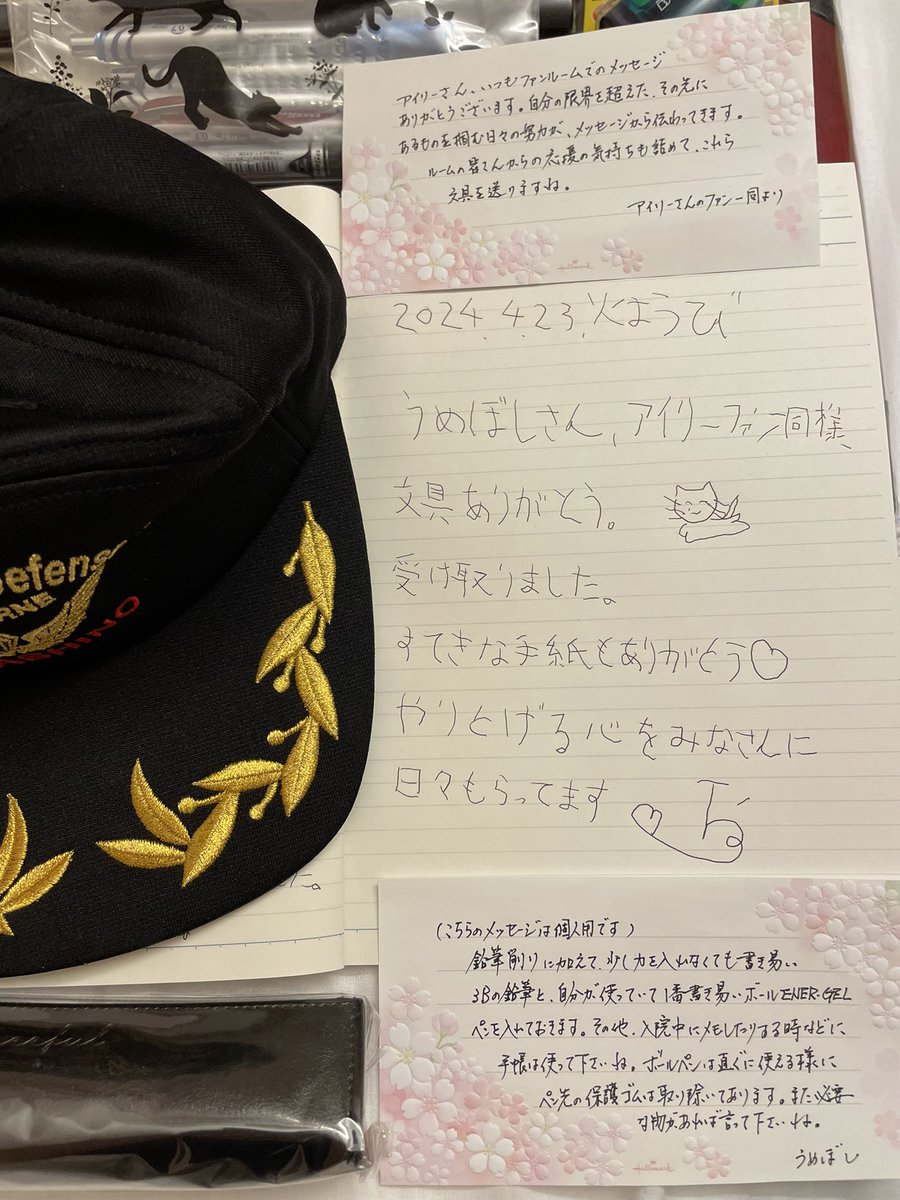 アイリーさん、いつもファンルームでのメッセージ
ありがとうございます。自分の限界を超えた、その先に
あるものを掴む日々の努力が、メッセージから伝わってきます。
ルームの皆さんからの応援の気持ちも詰めて、これら
文具を送りますね。
アイリーさんのファン一同より
Hallmark
2024.4.23.火ようび
うめぼしさん、アイリーファン同様、
文具ありがとう。
受け取りました。
すてきな手紙もありがとう♡
やりとげる心をみなさんに
日々もらってます
efens
ANE
SHINO
た。
(こちらのメッセージは個人用です)
鉛筆削りに加えて、少し力を入れなくても書き易い
3Bの鉛筆と、自分が使っていて1番書き易いボールENER-GEL
ペンを入れておきます。その他、入院中にメモしたりする時などに
手帳は使って下さいね。ボールペンは直ぐに使える様に
ペン先の保護ゴムは取り除いてあります。また必要
な物があれば言って下さいね。
うめぼし
Hallmark